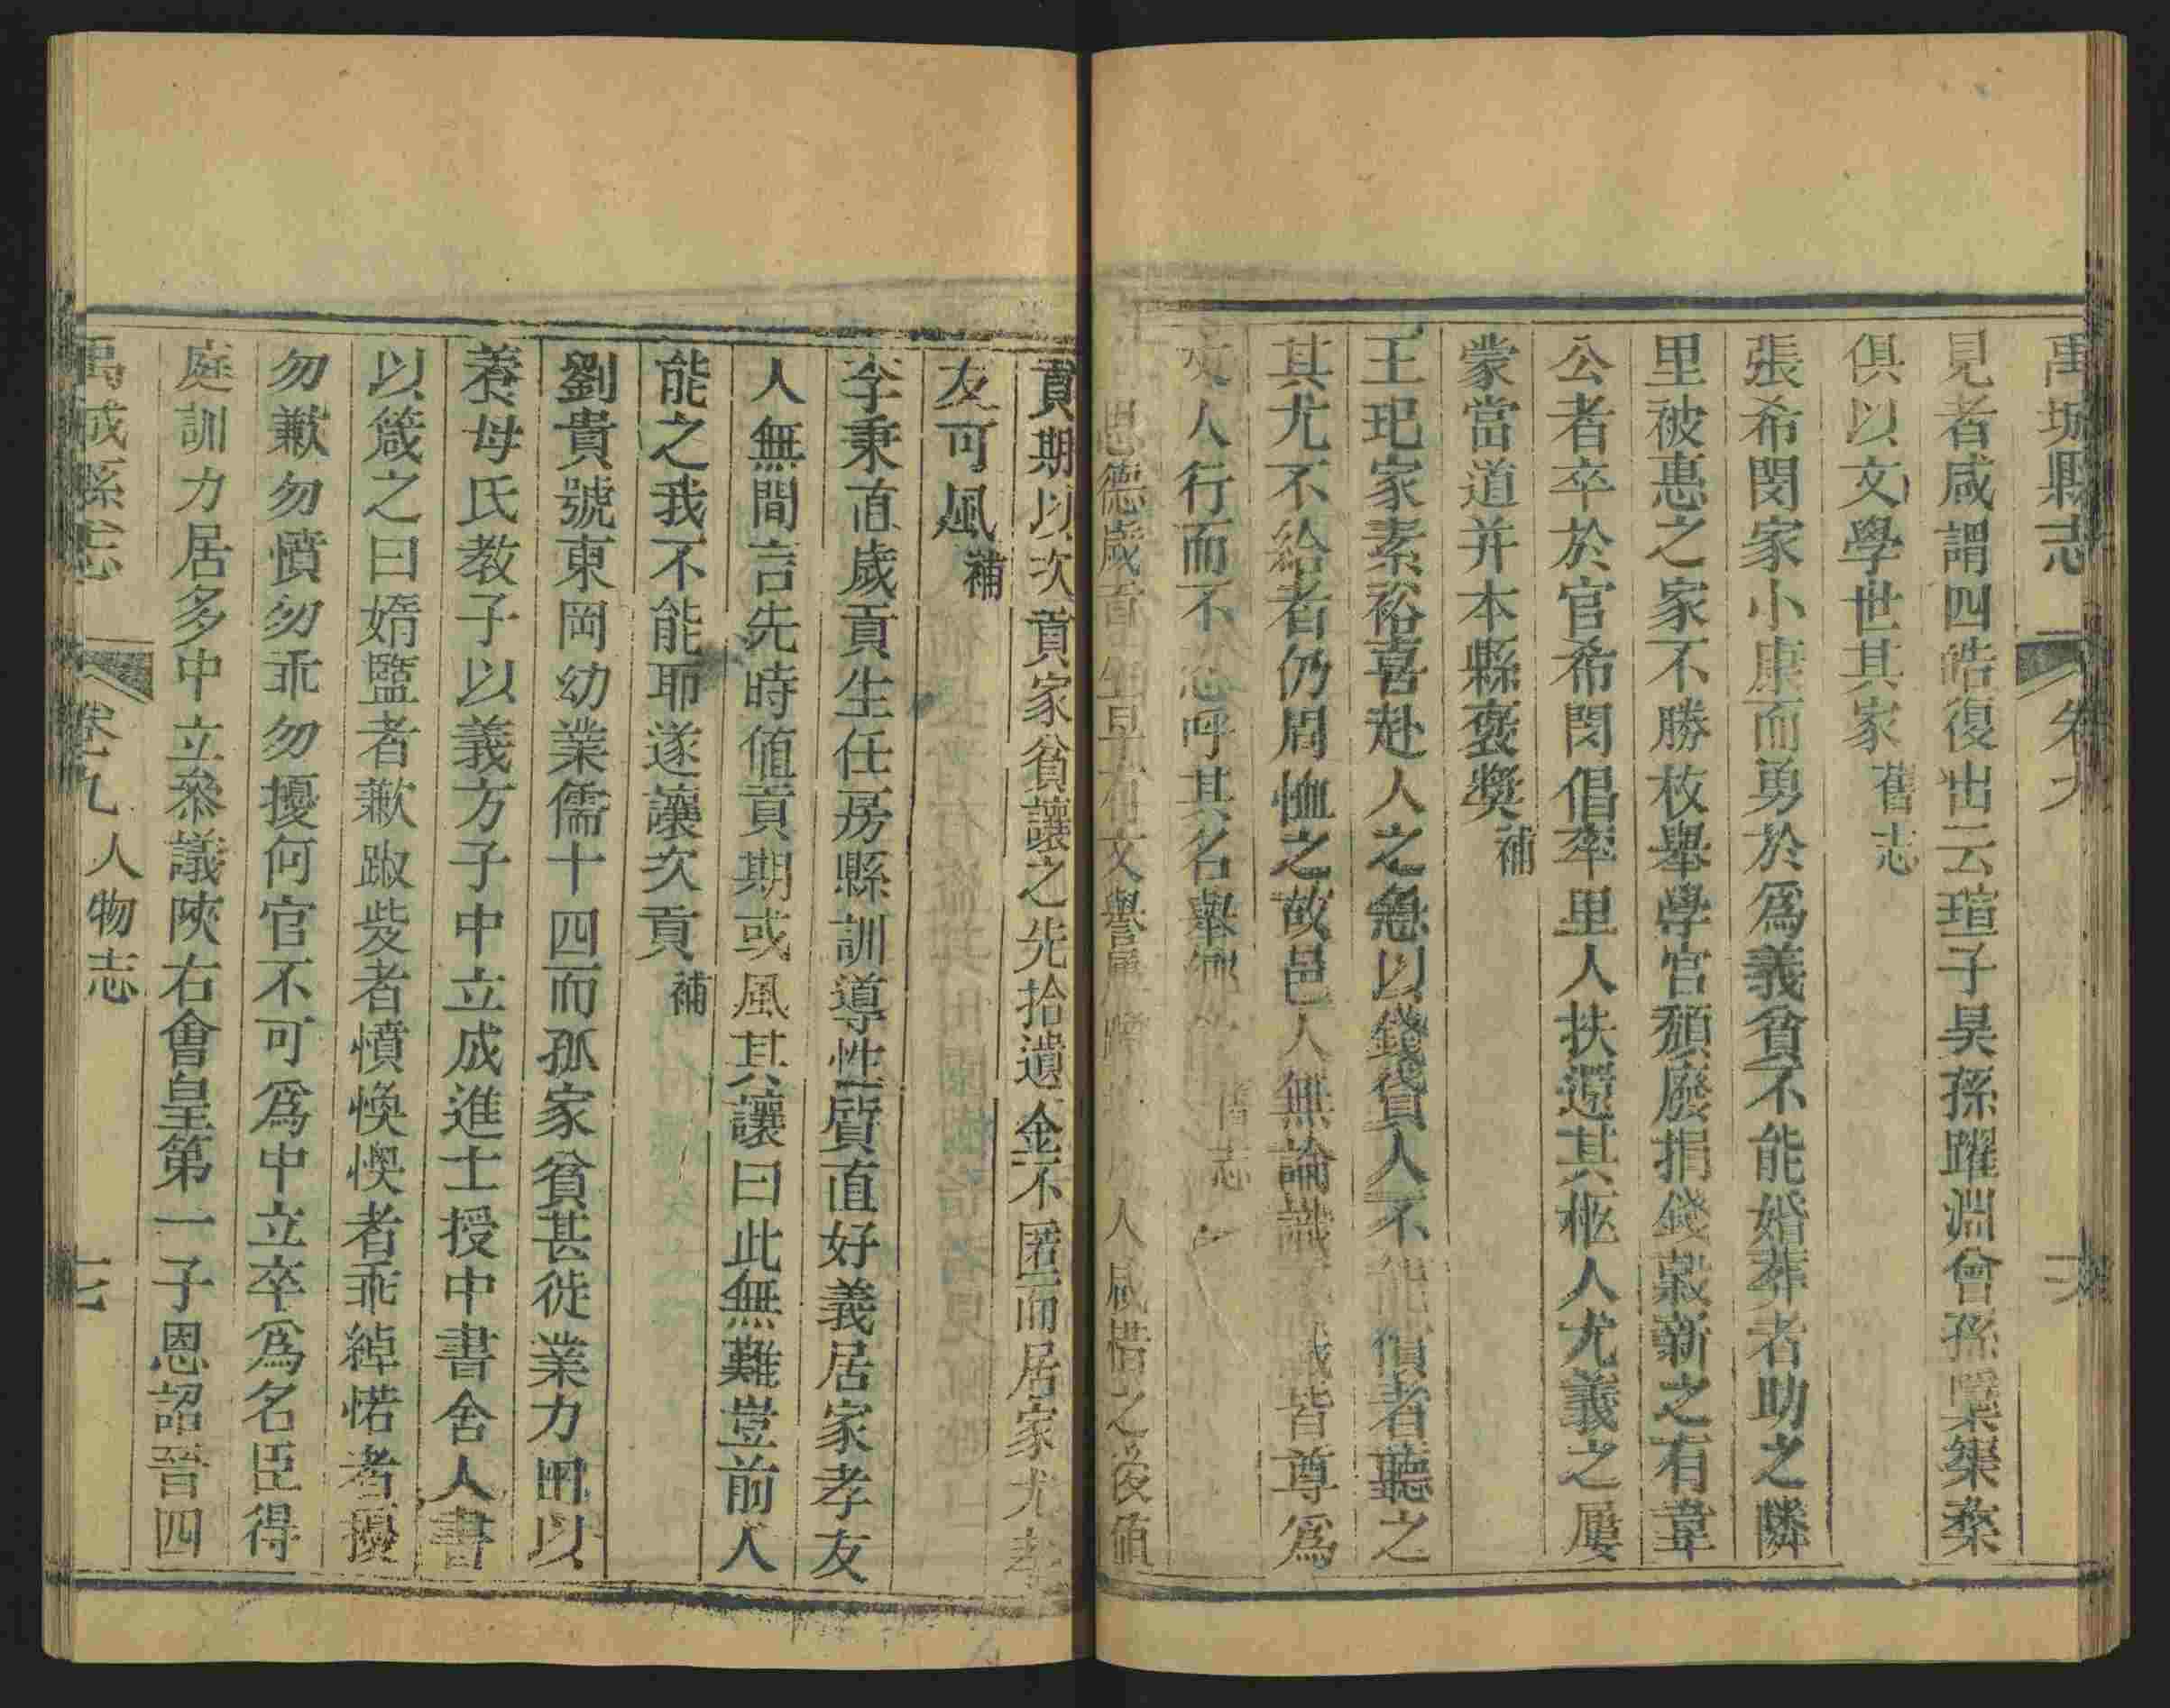 禹城縣志 卷九 十六
見者咸謂四皓復出云瑄子昊孫躍淵曾孫槼榘桼
俱以文學世其家舊志
張希閔家小康而勇於爲義貧不能婚葬者助之隣
里被惠之家不勝枚舉學官頹廢捐錢穀新之有韋
公者卒於官希閔倡率里人扶還其柩人尤義之屢
蒙當道并本縣褒獎補
王玘家素裕喜赴人之急以錢貸人不能償者聽之
其尤不給者仍周恤之故邑人無論識不識皆尊爲
丈人行而不忍呼其名舉鄉 舊志
思德歲貢生早有文譽 人咸惜之後值
貢期以次貢家貧讓之先拾遺金不匿而居家尤孝
友可風補
李秉直歲貢生任房縣訓導性質直好義居家孝友
人無間言先時值貢期或風其讓曰此無難豈前人
能之我不能耶遂讓次貢補
劉貴號東岡幼業儒十四而孤家貧甚徙業力田以
養母氏教子以義方子中立成進士授中書舍人書
以箴之曰媠盬者歉踧𡚁者憤愌愞者乖綽惰者擾
勿歉勿憤勿乖勿擾何官不可爲中立卒爲名臣得
庭訓力居多中立叅議陜右會皇第一子恩詔晉四
禹城縣志 卷九 人物志 十七